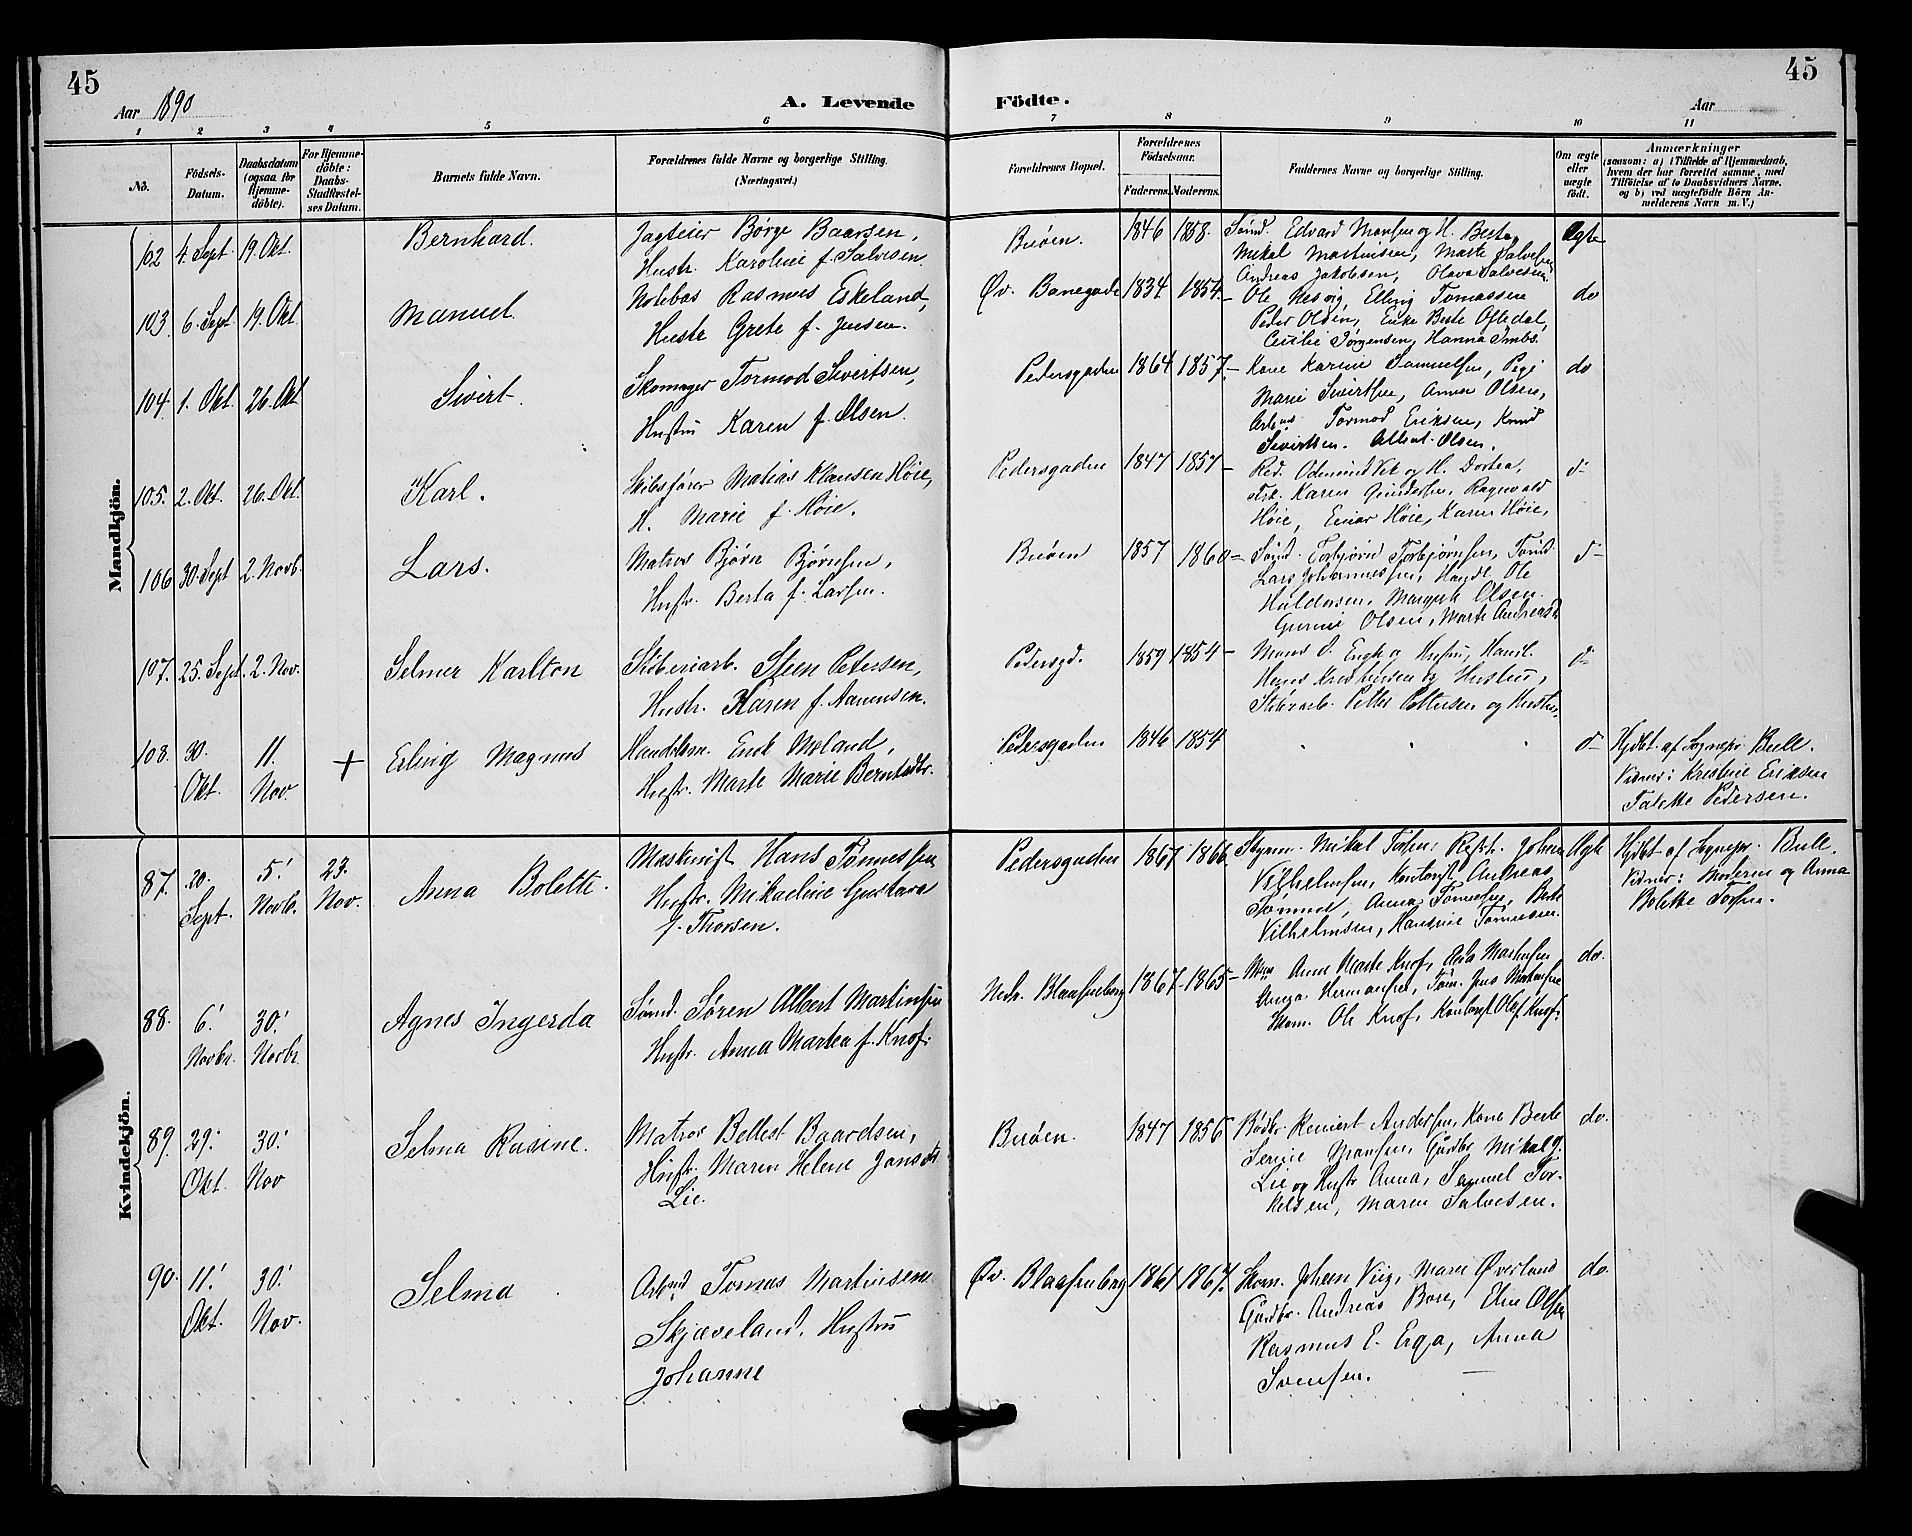 45
45
Aar 1890
A. Levende
Födte.
Aar
1 2 3 4 5 6 7 8 9 10 11
No.
Födsels-
Datum.
Daabsdatum
(ogsaa for
Hjemme-
döbte).
For Hjemme-
döbte:
Daabs-
Stadfæstel-
ses Datum.
Barnets fulde Navn.
Forældrenes fulde Navne og borgerlige Stilling.
(Næringsvei.)
Forældrenes Bopæl.
Forældrenes
Födselsaar.
Faderens. Moderens.
Faddernes Navne og borgerlige Stilling.
Om ægte
eller
uægte
født.
Anmærkninger
(saasom: a) i Tilfælde af Hjemmedaab,
hvem der har forrettet samme, med
Tilföielse af to Daabsvidners Navne.
og b) ved uægtefödte Börn An-
melderens Navn m. V.)
Mandkjön.
102 4. Sept 19. Okt. Bernhard.
Jagteier Børge Baarsen,
Hustr. Karoline f. Salvesen.
Buöen. 1846 1858.
Tømd. Edvard Monsen og H. Berta,
Mikal Martinsen, Marte Salvesen
Andreas Jakobsen, Olava Salvesen
Ægte
103. 6. Sept 19. Okt. Manuel.
Notebas Rasmus Eskeland,
Hustr Grete f. Jensen.
Øv. Banegade 1834 1854
Ole Nesvig, Elling Tomassen
Peder Olsen, Enke Berte Oftedal,
Cecilie Jørgensen, Hanna Imbs.
do
104. 1. Okt. 26. Okt. Sivert.
Skomager Tormod Sivertsen,
Hustru Karen f. Olsen.
Pedersgaden 1864 1857
Kone Karine Samuelsen, Pige
Marie Sivertsen, Anna Olsen,
Arb. Tormod Eriksen, Knud
Sivertsen. Albert Olsen.
do
105. 2. Okt. 26. Okt. Karl.
Skibsfører Matias Klausen Høie,
H. Marie f. Høie.
Pedersgaden 1847 1857
Red. Odmund Vik og H. Dortea,
Frk. Karen Gundersen, Ragnvald
Høie, Einar Høie, Karen Høie,
d-
106 30. Sept 2. Novb. Lars.
Matros Bjørn Bjørnsen,
Hustr. Berta f. Larsen.
Buöen 1857 1860
Tømd. Torbjørn Torbjørnsen, Tømd.
Lars Johannessen, Handl. Ole
Huldersen, Margrete Olsen.
Gurine Olsen, Marte Andreasd.
d-
107. 25. Sept. 2. Nov. Selmer Karlton
Støberiarb. Steen Petersen,
Hustr. Karen f. Aanensen.
Pedersgd. 1859 1854
Mons O. Enge og Hustru, Handl.
Hans Kristensen og Hustru,
Støberarb. Petter Pettersen og Hustru,
d-
108. 30. Okt. 11. Nov. + Erling Magnus
Handelsm. Enok Moland,
Hustr. Marte Marie Berntsdtr.
Pedersgaden 1846 1854
d-
Hjdbt af Sognepr Bull.
Vidner: Kristine Eriksen
Talette Pedersen.
Kvindekjön.
87. 20. Sept. 5. Novb. 23. Nov. Anna Bolette.
Maskinist Hans Tønnessen
Hustr. Mikaeline Gustava
f. Thorsen.
Pedersgaden 1867 1866
Styrm. Mikal Torsen, Johan
Vilhelmsen, Kontorist Andreas
Tønnesen, Anna Tønnesen, Berte
Vilhelmsen, Hansine Tønnesen.
Ægte
Hjdbt af Sognepr. Bull.
Vidner: Moderen og Anna
Bolette Torsen.
88. 6. Novbr. 30. Novbr. Agnes Ingerda
Tømd. Søren Albert Martinsen
Hustr. Anna Martea f. Knof.
Nedr. Blaasenborg 1867 1865
Anne Marte Knof, Asta Martinsen
Anga Hermansen, Tøm. Jens Martinsen
Ole Knof, Kontorist Olaf Knof.
do.
89. 29. Okt. 30. Nov Selma Rasine.
Matros Bellest Baardsen,
Hustr. Maren Helene Jonsdt.
Lie.
Buöen. 1847 1856
Bødkr. Reinert Andersen, Kone Berte
Serine Monsen, Gårdbr. Mikal J.
Lie og Hustr Anna, Samuel Tor-
kelsen, Maren Salvesen.
do.
90. 11. Okt. 30. Nov. Selma
Arbmd Tomas Martinsen
Skjæveland, Hustru
Johanne
Øv. Blaasenborg 1861 1867
Skom. Johan Viig, Mari Øverland
Gårdbr. Andreas Bore, Elen Olsen
Rasmus E. Erga, Anna
Svensen.
do.